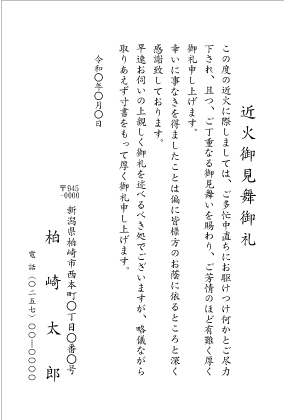 近火御見舞御礼
この度の近火に際しましては、ご多忙中直ちにお駆けつけ何かとご尽力
下され、且つ、ご丁重なる御見舞いを賜わり、ご芳情のほど有難く厚く
御礼申し上げます。
幸いに事なきを得ましたことは偏に皆様方のお蔭に依るところと深く
感謝致しております。
早速お伺いの上親しく御礼を述べるべき処でございますが、略儀ながら
取りあえず寸書をもって厚く御礼申し上げます。
令和〇年〇月〇日
〒945-0000
新潟県柏崎市西本町〇丁目〇番〇号
柏崎太郎
電話(〇二五七)〇〇―〇〇〇〇